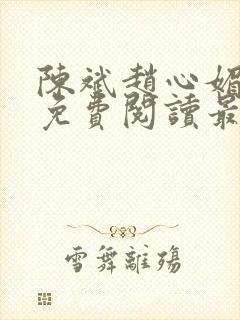 陳斌趙心媚
免費閱讀最
雪舞離殤